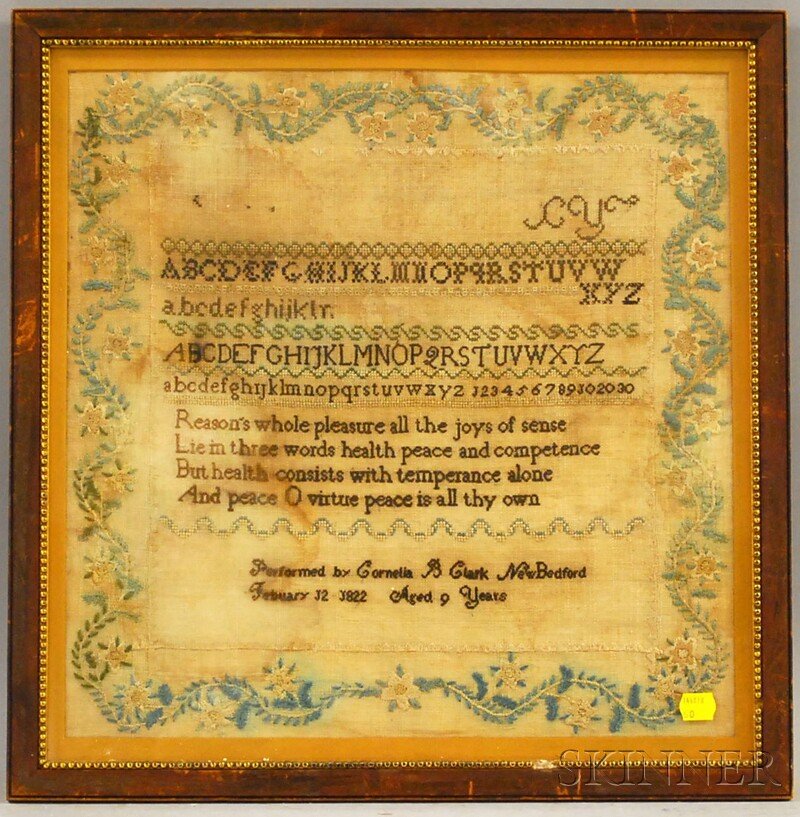 C Y
ABCDEFGHIJKLMNOPQRSTUVW
XYZ
abcdefghijklm
ABCDEFGHIJKLMNOPQRSTUVWXYZ
abcdefghijklmnopqrstuvwxyz 123456789102030
Reason's whole pleasure all the joys of sense
Lie in three words health peace and competence
But health consists with temperance alone
And peace O virtue peace is all thy own
Performed by Cornelia B Clark NewBedford
Febuary 12 1822 Aged 9 Years
SKINNER